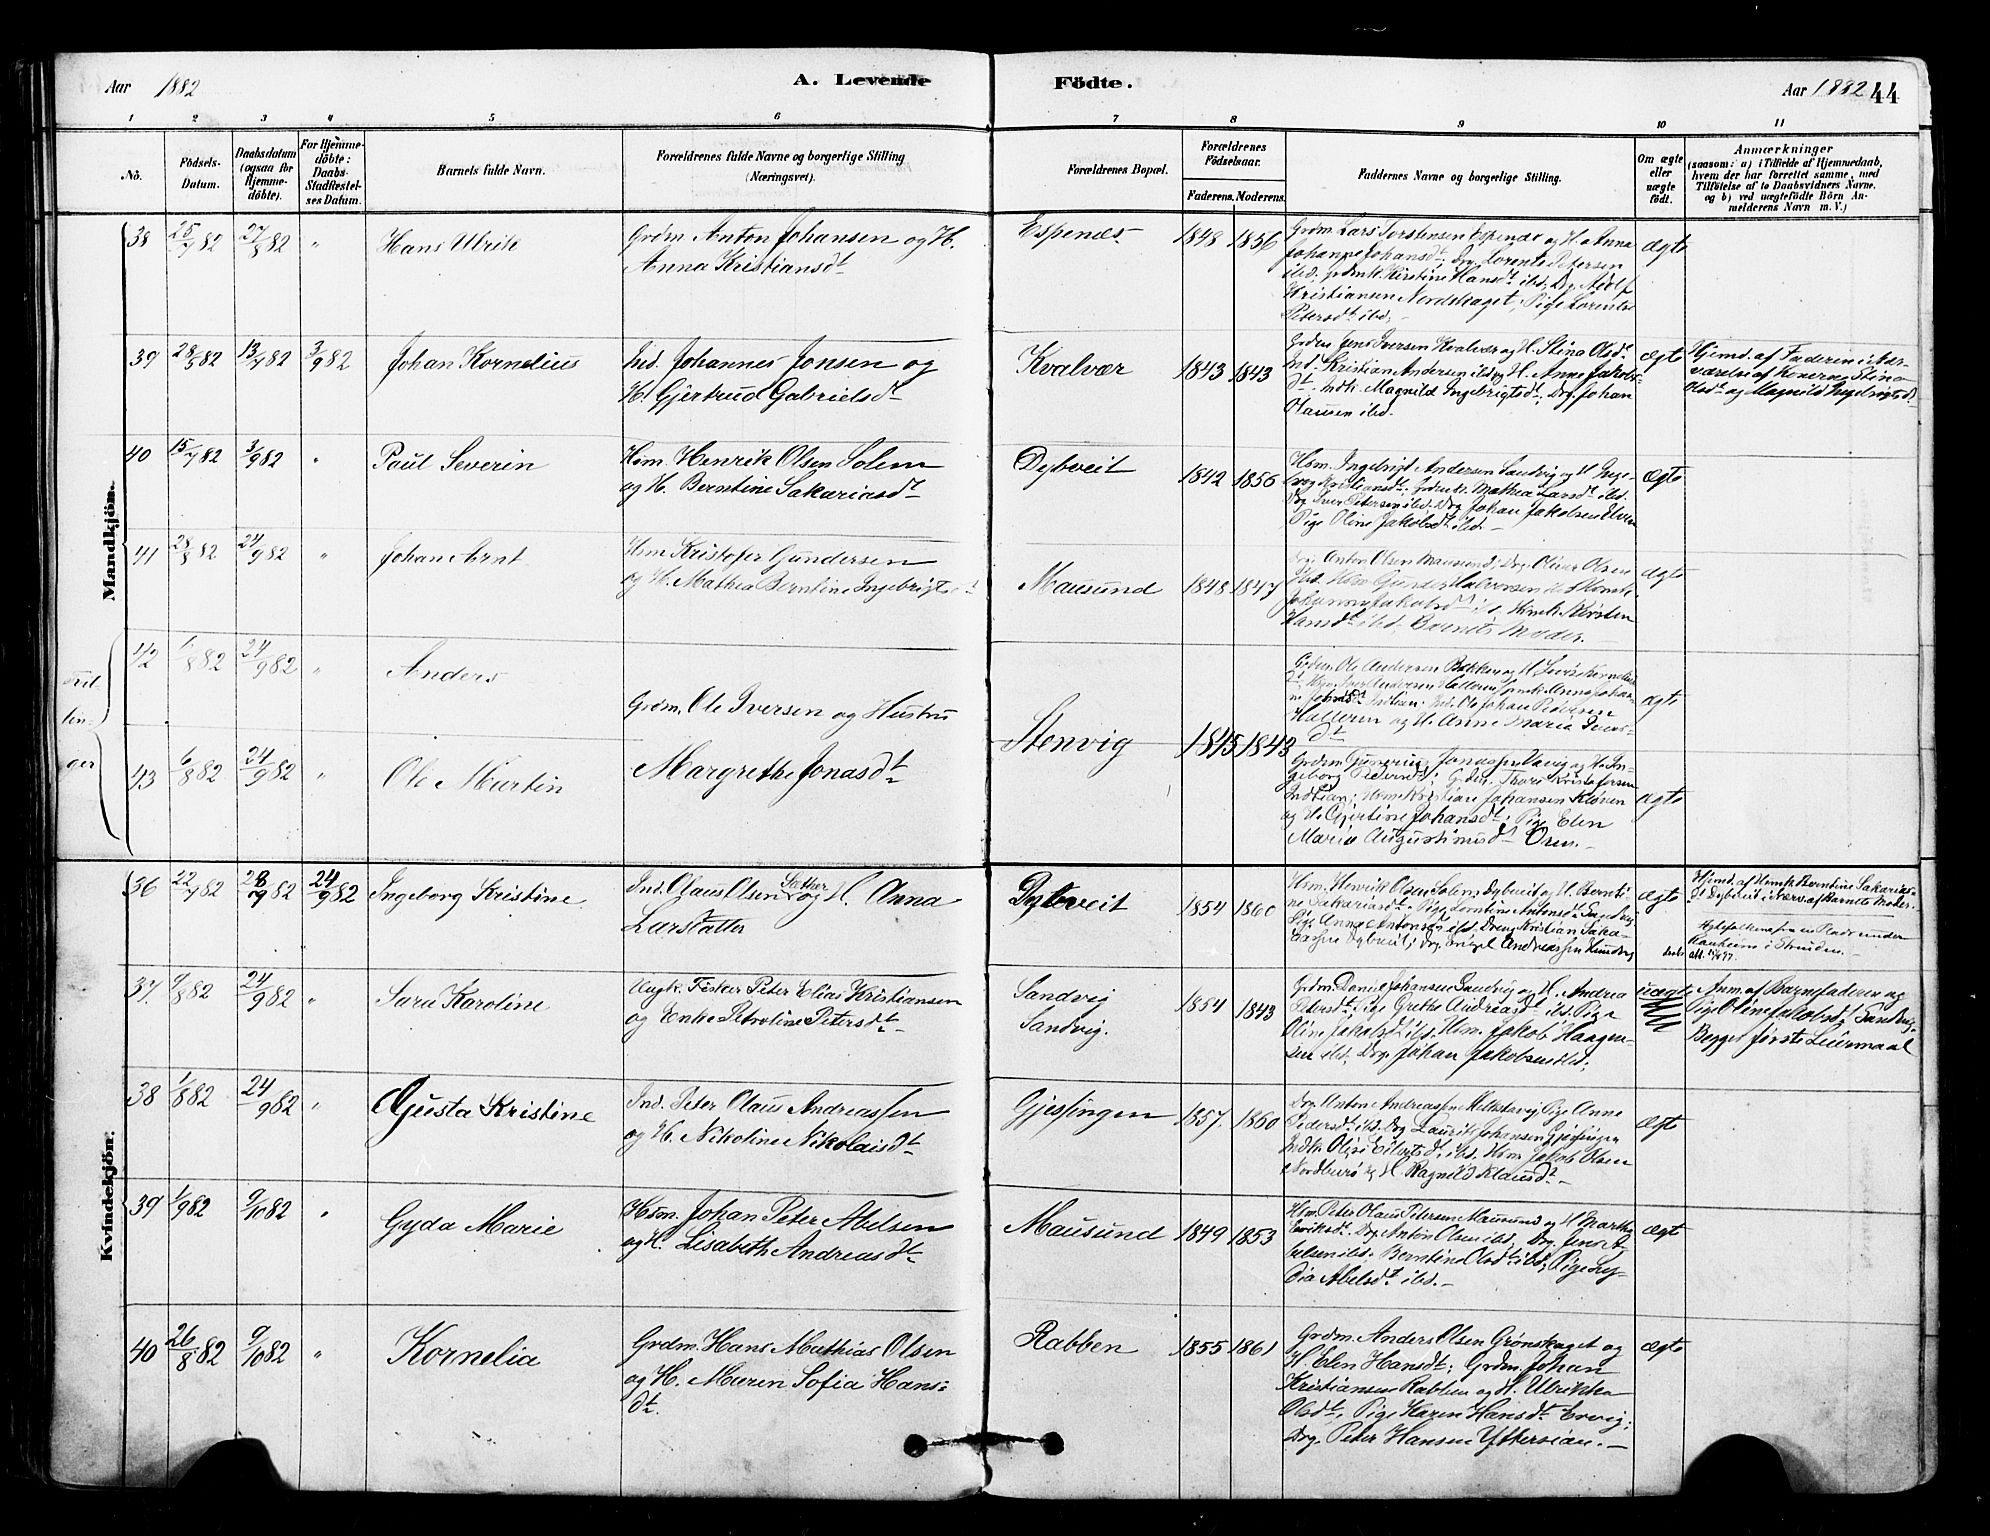 Aar 1882
A. Levende
Födte.
Aar 1882 44
1 2 3 4 5 6 7 8 9 10 11
No.
Födsels-
Datum.
Daabsdatum
(ogsaa for
Hjemme-
döbte).
For Hjemme-
döbte:
Daabs-
Stadfæstel-
ses Datum.
Barnets fulde Navn.
Forældrenes fulde Navne og borgerlige Stilling
(Næringsvei).
Forældrenes Bopæl.
Forældrenes
Födselsaar.
Faderens. Moderens.
Faddernes Navne og borgerlige Stilling.
Om ægte
eller
uægte
födt.
Anmærkninger
(saasom: a) i Tilfælde af Hjemmedaab,
hvem der har forrettet samme, med
Tilföielse af to Daabsvidners Navne,
og b) ved uægtefödte Börn An-
melderens Navn m. V.)
Mandkjön.
38 25/7 82 27/8 82 " Hans Ulrik
Grdm. Anton Johansen og H.
Anna Kristiansdt
Espenes 1848 1856
Grdm. Lars Torstensen Espenes og H. Anna
Johanna Johansdt; Drg. Lorents Petersen
ibd; Grdmk. Kirstine Hansdt ibd; Drg. Adolf
Kristiansen Nordskaget; Pige Lorentse
Petersdt ibd;
ægte
39 28/5 82 13/7 82 3/9 82 Johan Kornelius
Ind. Johannes Jonsen og
H. Gjertrud Gabrielsdt
Kvalvær 1843 1843
Grdm. Jens Iversen Kvalvær og H. Stina Olsdt.
Ind. Kristian Andersen ibd og H. Anne Jakobs-
dt. Indk. Magnild Ingebrigtsdt; Drg. Johan
Olausen ibd.
ægte
Hjemd. af Faderen i Nær-
værelse af Konerne Stina
Olsdt og Magnild Ingebrigtsdt
40 15/7 82 3/9 82 " Paul Severin
Hsm. Henrik Olsen Solem
og H. Berntine Sakariasdt
Dybveit 1842 1856
Hsm. Ingebrigt Andersen Sandvig og H.
Kristiansdt; Grdmk. Mathea Larsdt ibd.
Drg. Iver Petersen ibd. Drg. Johan Jakobsen
Pige Oline Jakobsdt ibd.
ægte
41 28/8 82 24/9 82 " Johan Arnt
Hsm. Kristofer Gundersen
og H. Mathea Berntine Ingebrigtsdt
Mausund 1848 1847
Drg. Anton Olsen Mausund; Drg. Oliver Olsen
ibd. Hsm. Gunder Halvorsen ibd
Johanna Jakobsdt ibd. Hsmk. Kirsten
Hansdt ibd; Barnets Moder.
ægte
Tvil-
lin-
ger
42 6/8 82 24/9 82 " Anders
Grdm. Ole Iversen og Hustru
Margrethe Jonasdt
Stenvig 1845 1843
Grdm. Ole Andersen Bekken og H.
Hsm. Iver Andersen Halleren
Indtian; Ind. Ole Johan Pedersen
Halleren og H. Anne Maria
dt
ægte
43 6/8 82 24/9 82 " Ole Martin
Grdm. Jonassen Ulvig og H. In-
geborg Pedersdt; Grdm. Thore Kristofersen
Indtian; Hsm. Kristian Johansen Kløven
og H. Gjertine Johansdt; Pige Elen
Maria Augustinusdt
ægte
Kvindekjön.
36 22/7 82 82 24/9 82 Ingeborg Kristine
Ind. Olaus Olsen Sæther og H. Anna
Larsdatter
Dybveit 1854 1860
Hsm. Henrik Olsen Solem, Dybveit og H. Bernti-
ne Sakariasdt. Pige Berntine Antonsdt Sandvig
Pige Anna Antonsdt ibd; Dreng Kristian Saka-
riassen Dybveit; Drg. Andreassen
ægte
Hjemd. af Hsmk. Berntine Sakarias-
dt Dybveit i Nærv. af Barnets Moder.
Ranheim i Strinden.
37. 9/8 82 24/9 82 " Sara Karoline
Ungk. Fisker Peter Elias Kristiansen
og Enke Petroline Petersdt
Sandvig
Sandvig. 1854 1843
Grdm. Daniel Johansen Sandvig og H. Andrea
Petersdt; Pige Grethe Andreasdt ibd. Pige
Oline Jakobsdt ibd. Hsm. Jakob Haagen-
sen ibd; Drg. Johan Jakobsen ibd;
uægte
Anm. af Barnefaderen og
Pige Oline Jakobsdt Sandvig.
Begges første Leiermaal
38 1/8 82 24/9 82 " Gusta Kristine
Ind. Peter Olaus Andreassen
og H. Nikoline Nikolaisdt
Gjessingen 1857. 1860
Drg. Anton Andreassen Pige Anne
Pedersdt ibd. Drg. Laurits Johansen Gjessingen
Indk. ibd. Hsm. Jakob Olsen
Nordbur og H. Ragnild Klausdt
ægte
39 1/9 82 9/10 82 " Gyda Marie
Hsm. Johan Peter Abelsen
og H. Lisabeth Andreasdt
Mausund 1849 1853
Hsm. Peter Olaus Petersen Mausund og H. Martha
Eriksdt. Drg. Anton Olsen ibd; Drg. Jens A-
belsen ibd; Berntine Olsdt ibd; Pige Ly-
dia Abelsdt ibd.
ægte
40 26/8 82 9/10 82 " Kornelia
Grdm. Hans Mathias Olsen
og H. Maren Sofia Hans-
dt.
Rabben 1855 1861
Grdm. Anders Olsen Grønskaget og
H. Elen Hansdt; Grdm. Johan
Kristiansen Rabben og H. Ulrikka
Olsdt; Pige Karen Hansdt Ervig;
Drg. Peter Hansen Yttersian.
ægte